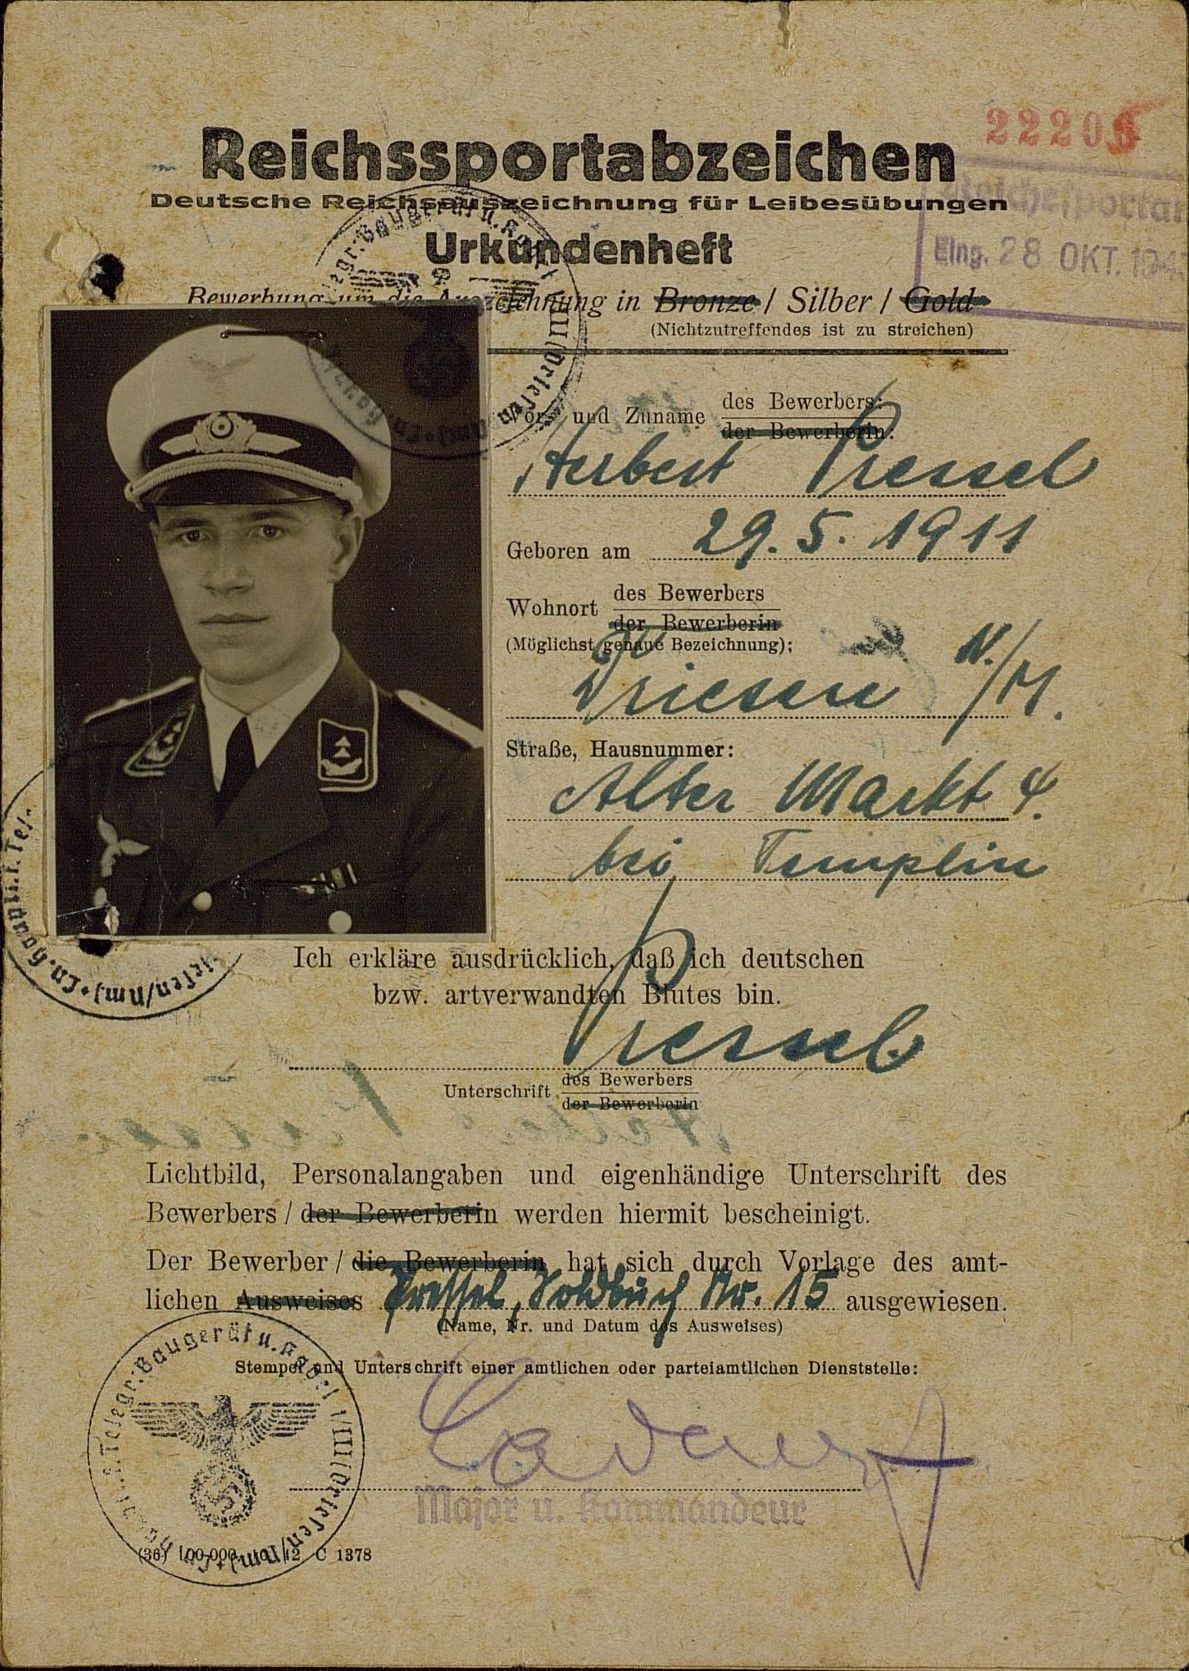 22206
Reichssportabzeichen
Deutsche Reichsauszeichnung für Leibesübungen
Urkundenheft
Eing. 28 OKT. 194
Bewerbung um die Auszeichnung in Bronze / Silber / Gold
(Nichtzutreffendes ist zu streichen)
Vor- und Zuname des Bewerbers:
der Bewerberin:
Herbert Pressel
Geboren am 29.5.1911
Wohnort des Bewerbers
der Bewerberin
(Möglichst genaue Bezeichnung):
Driesen N./M.
Straße, Hausnummer:
Alter Markt 4.
bei Templin
Ich erkläre ausdrücklich, daß ich deutschen
bzw. artverwandten Blutes bin.
Pressel
Unterschrift des Bewerbers
der Bewerberin
Lichtbild, Personalangaben und eigenhändige Unterschrift des
Bewerbers / der Bewerberin werden hiermit bescheinigt.
Der Bewerber / die Bewerberin hat sich durch Vorlage des amt-
lichen Ausweises Pressel, Soldbuch Nr. 15 ausgewiesen.
(Name, Nr. und Datum des Ausweises)
Stempel und Unterschrift einer amtlichen oder parteiamtlichen Dienststelle:
Major u. Kommandeur
(36) 100000 42 C 1378